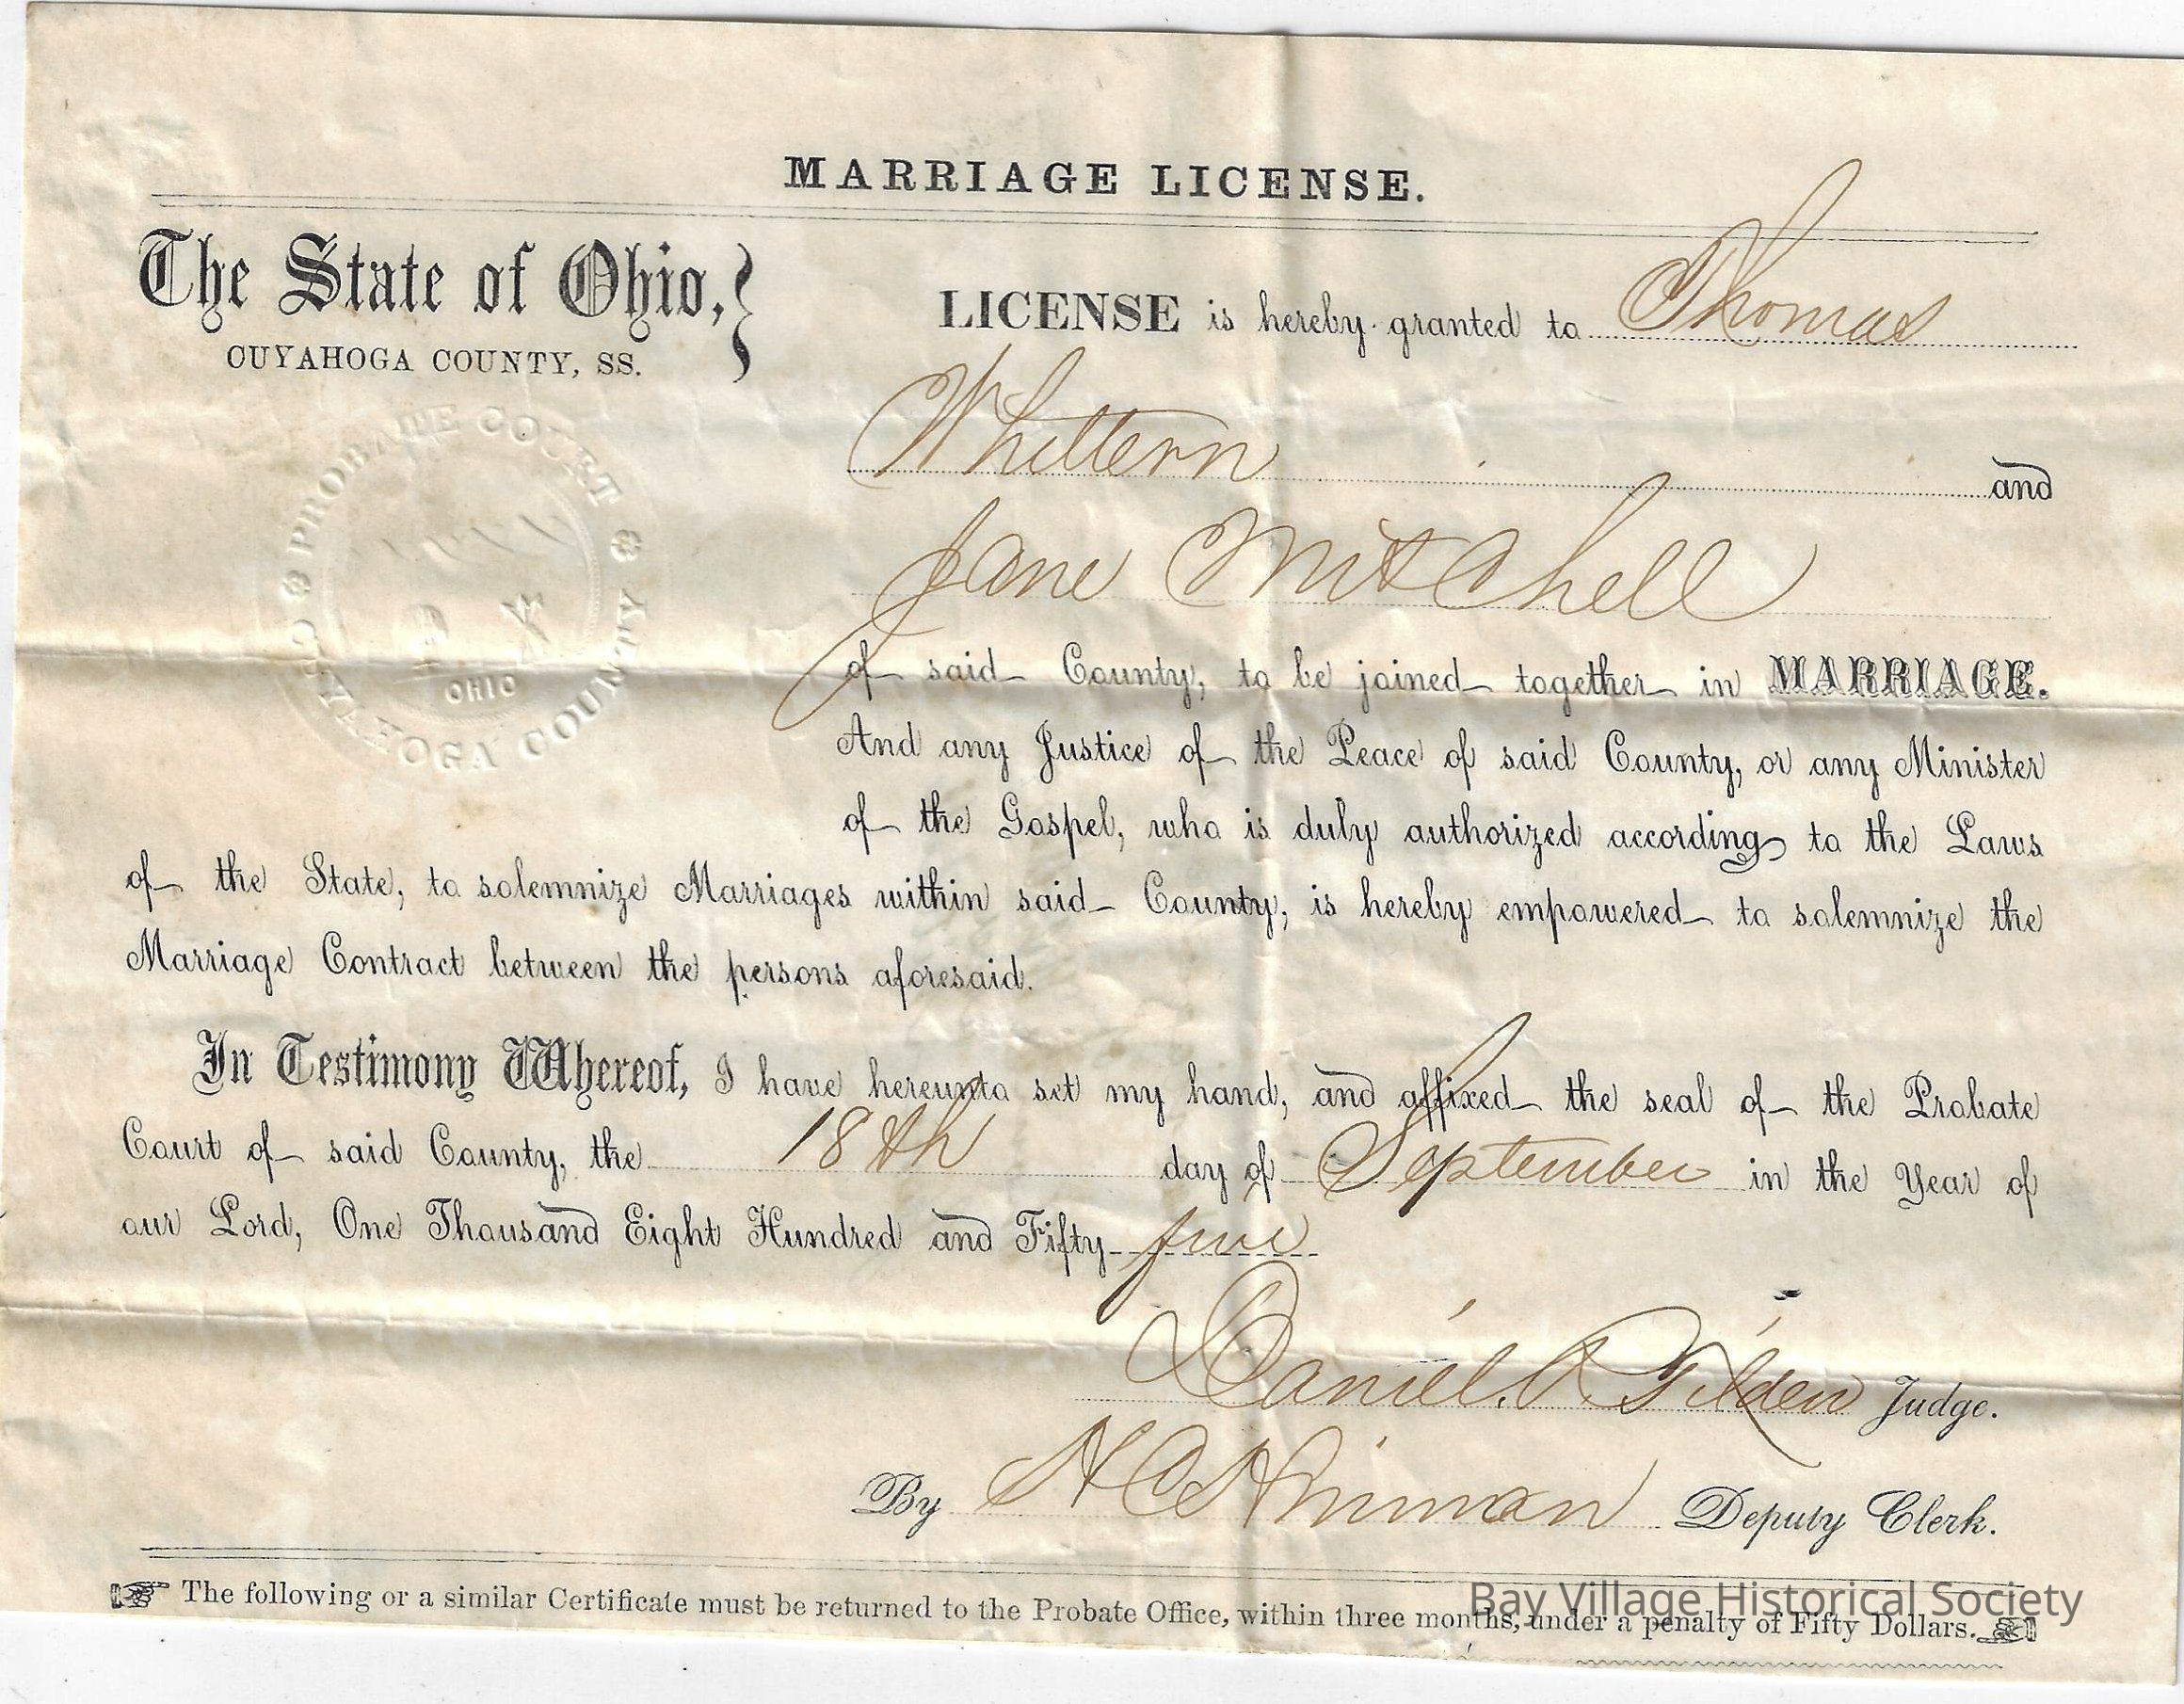 MARRIAGE LICENSE.
The State of Ohio,
CUYAHOGA COUNTY, SS.
PROBATE COURT
CUYAHOGA COUNTY
OHIO
LICENSE is hereby granted to Thomas
Whittern and
Jane Mitchell
of said County, to be joined together in MARRIAGE.
And any Justice of the Peace of said County, or any Minister
of the Gospel, who is duly authorized according to the Laws
of the State, to solemnize Marriages within said County, is hereby empowered to solemnize the
Marriage Contract between the persons aforesaid.
In Testimony Whereof, I have hereunto set my hand, and affixed the seal of the Probate
Court of said County, the 18th day of September in the Year of
our Lord, One Thousand Eight Hundred and Fifty five
Daniel R Tilden Judge.
By Deputy Clerk.
The following or a similar Certificate must be returned to the Probate Office, within three months, under a penalty of Fifty Dollars.
Bay Village Historical Society